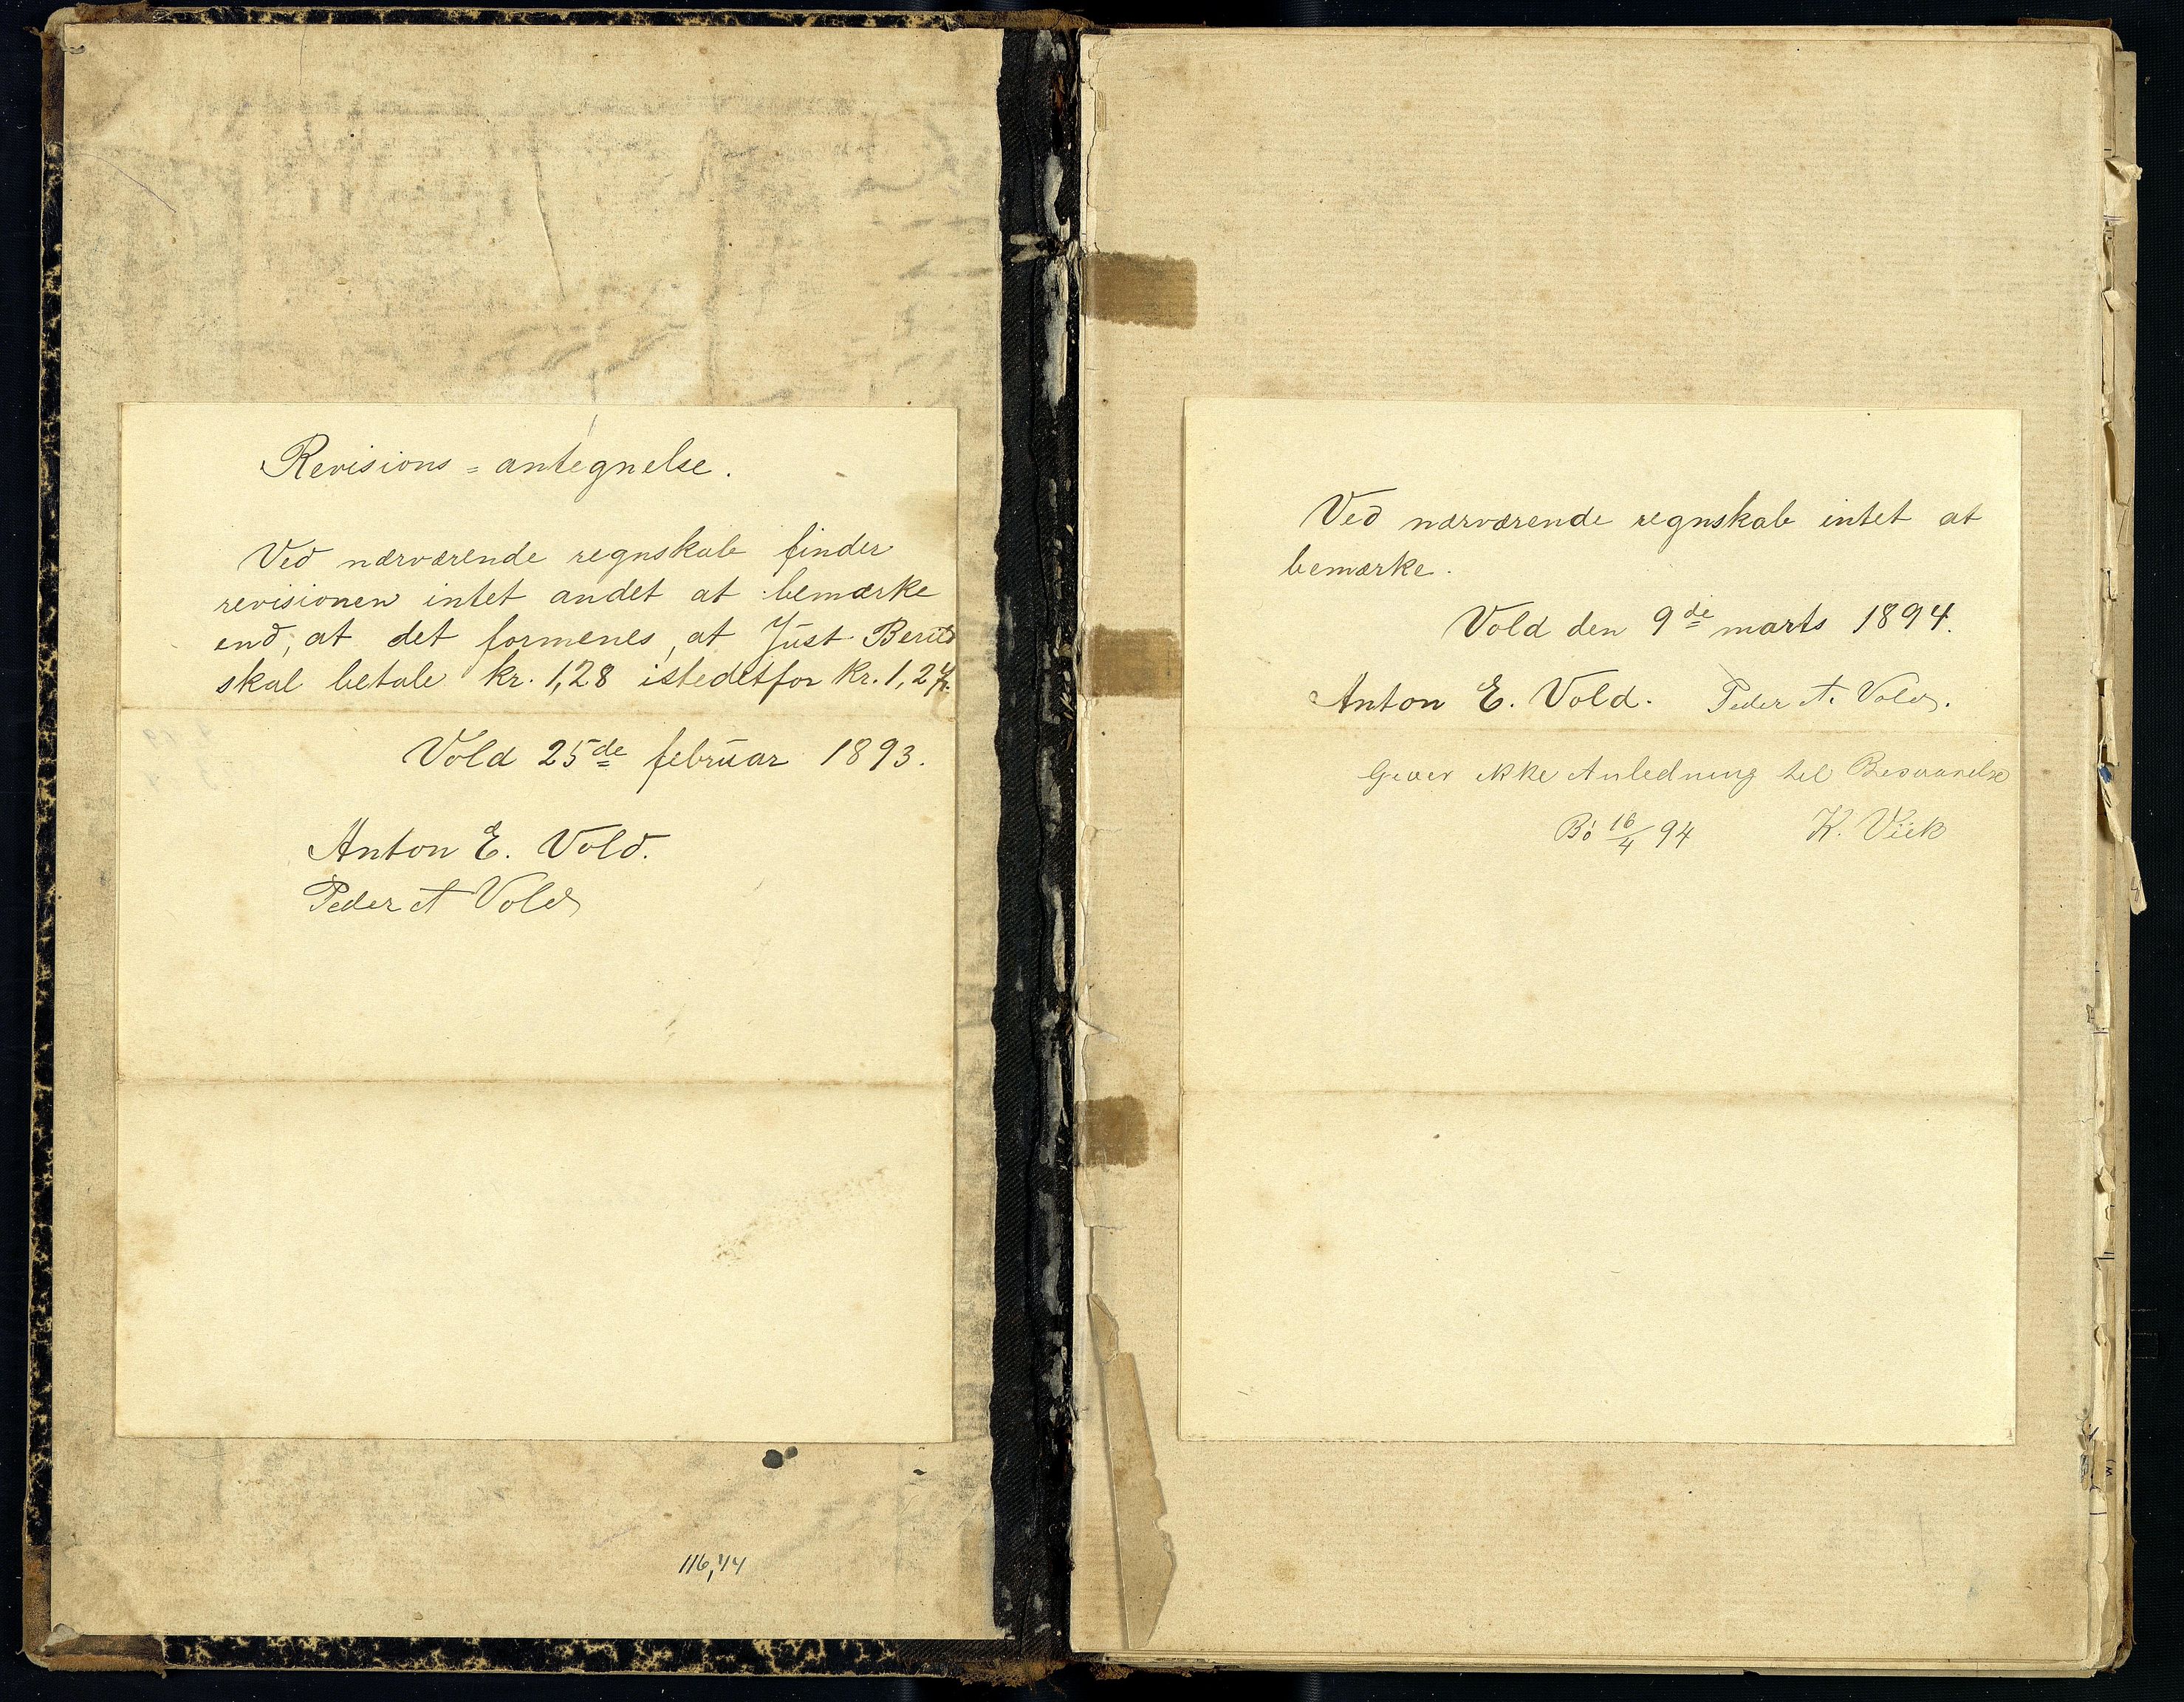 Revisions = antegnelse.
Ved nærværende regnskab finder
revisionen intet andet at bemærke
end, at det formenes, at Just Berild
skal betale kr. 1,28 istedetfor kr. 1,24.
Vold 25de februar 1893.
Anton E. Vold.
Peder A Vold
116,44
Ved nærværende regnskab intet at
bemærke.
Vold den 9de marts 1894.
Anton E. Vold. Peder A. Vold.
Giver ikke Anledning til Besvarelse
Bö 16/4 94 K. Viik